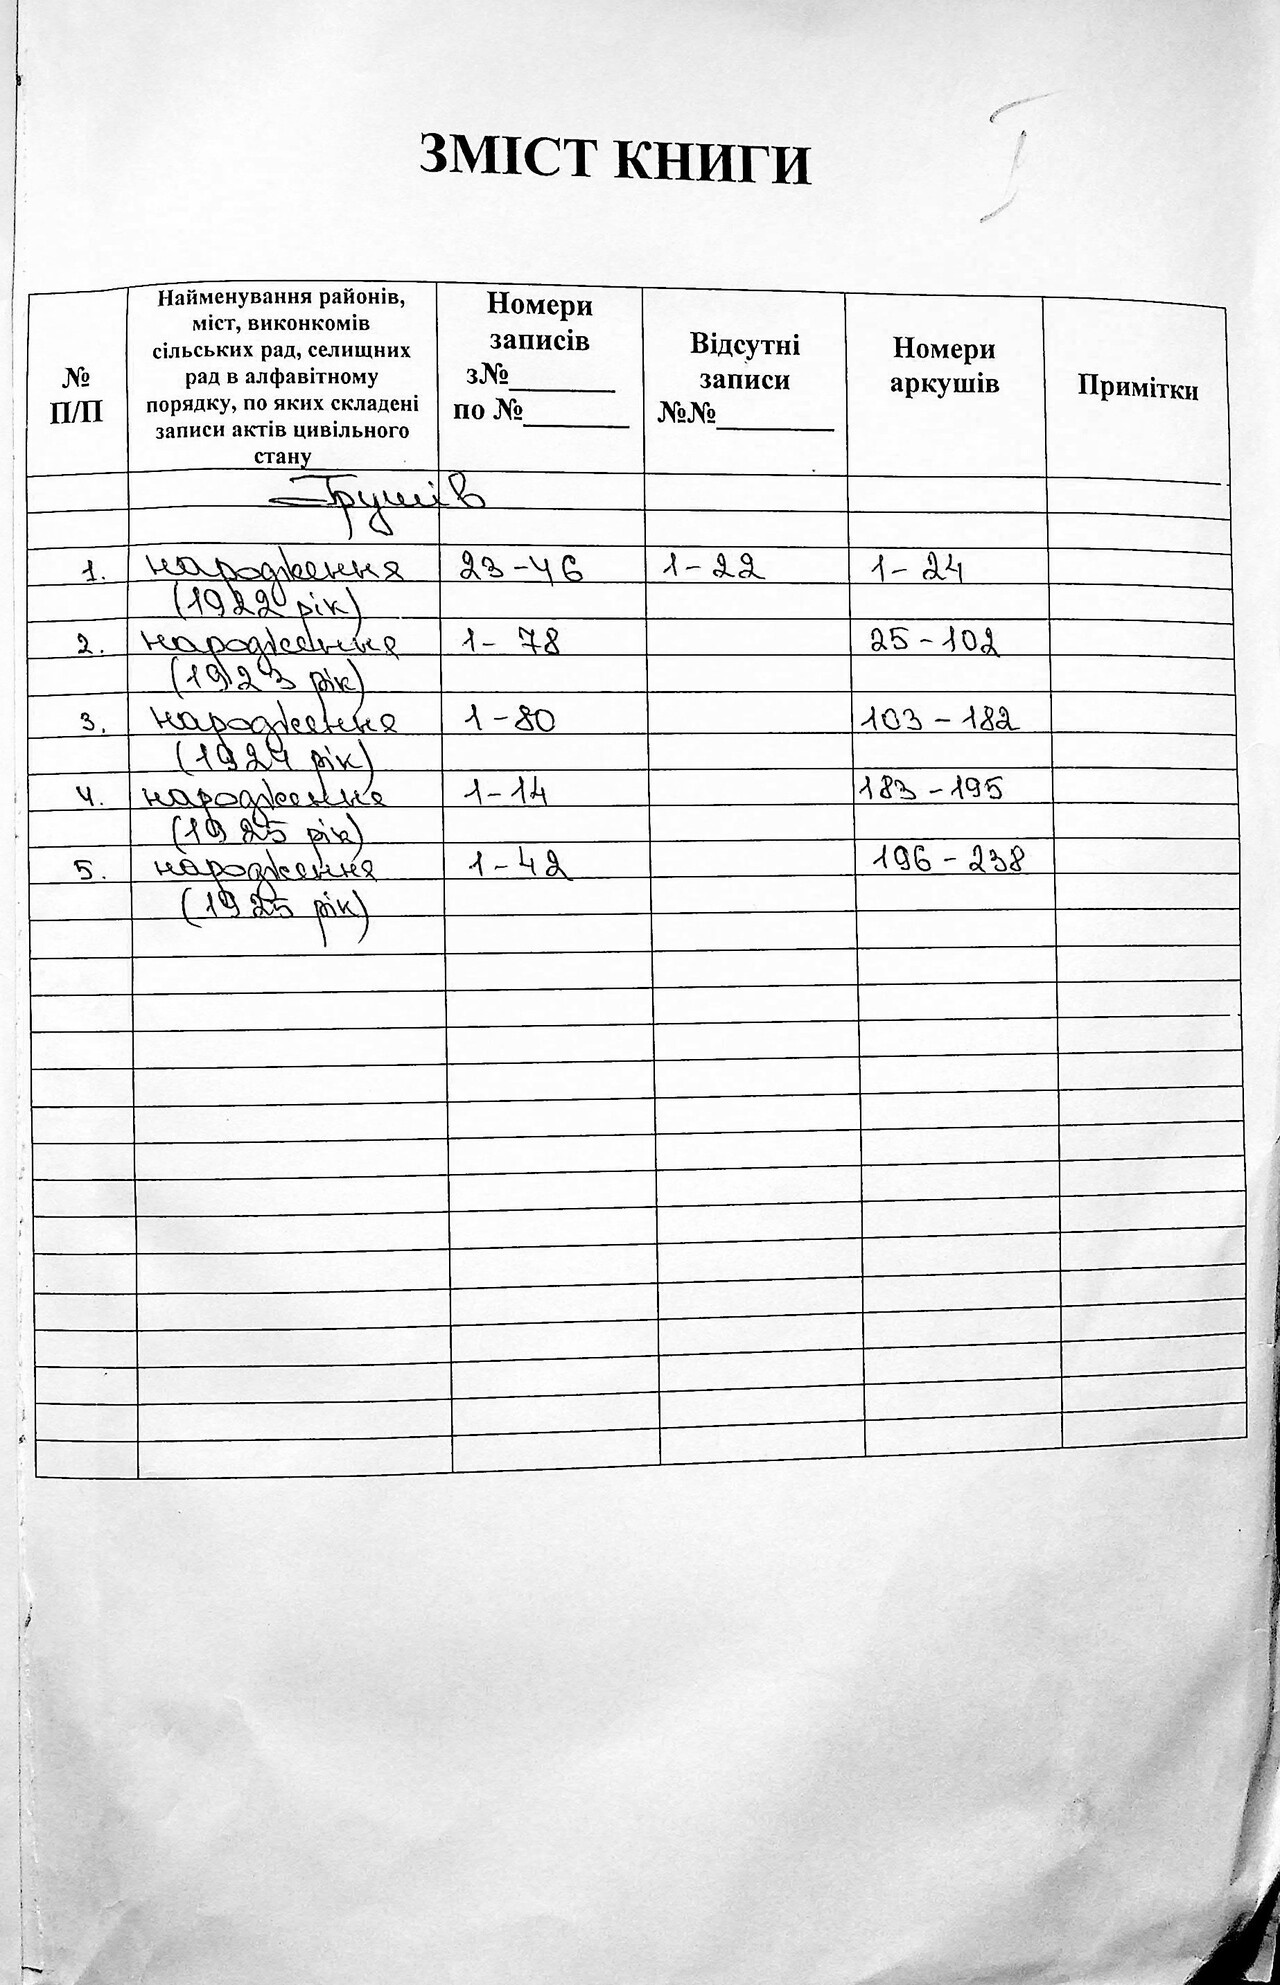 I
ЗМІСТ КНИГИ
№ П/П
Найменування районів,
міст, виконкомів
сільських рад, селищних
рад в алфавітному
порядку, по яких складені
записи актів цивільного
стану
Номери
записів
з№________
по №________
Відсутні
записи
№№_________
Номери
аркушів
Примітки
Грушів
1. народження 23-46 1-22 1-24
(1922 рік)
2. народження 1-78 25-102
(1923 рік)
3. народження 1-80 103-182
(1924 рік)
4. народження 1-14 183-195
(1925 рік)
5. народження 1-42 196-238
(1925 рік)